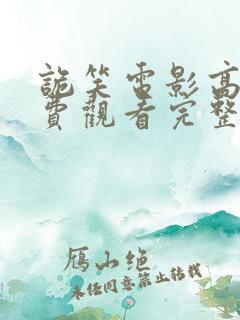 詭笑電影高
費觀看完整
鴈山绝
未经同意禁止转载